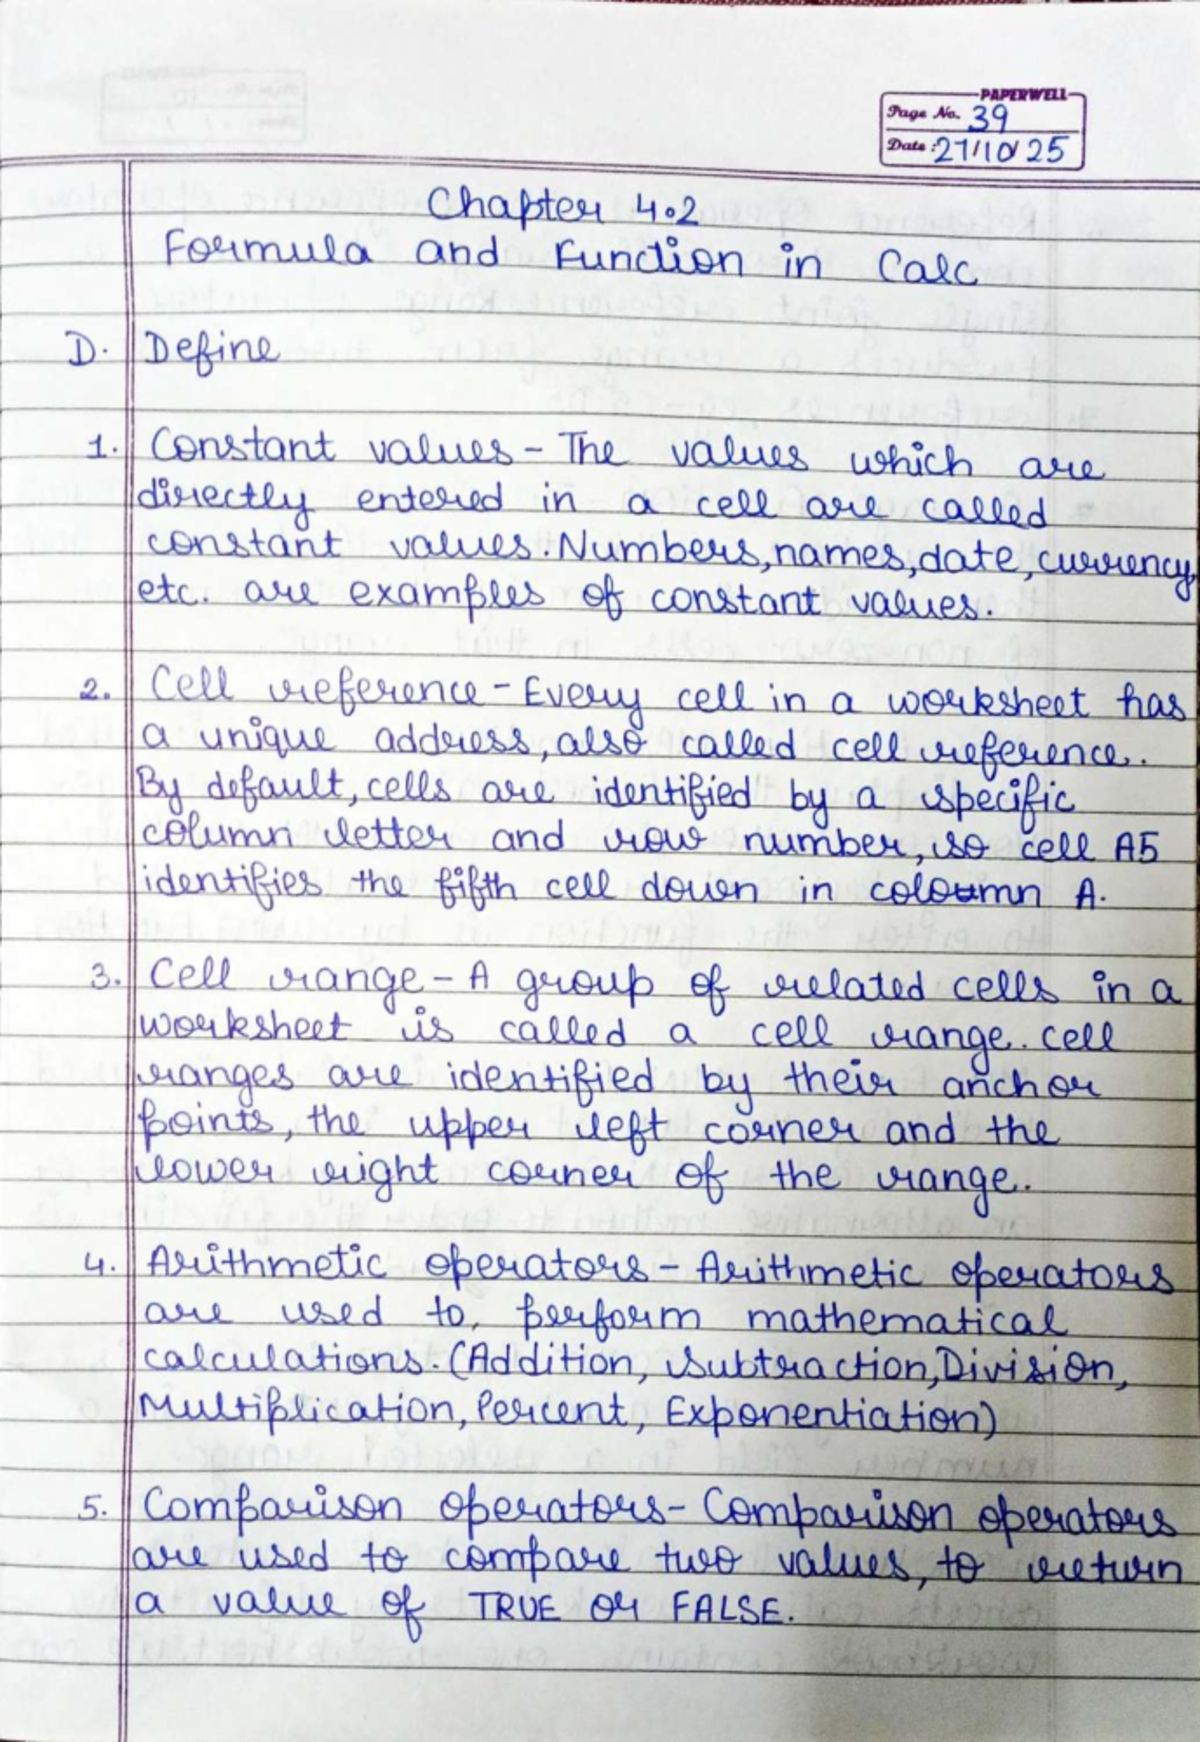 PAPERWELL
Page No. 39
Date: 27/10/25
Chapter 4.2
Formula and Function in Calc
D. Define
1. Constant values - The values which are
directly entered in a cell are called
constant values. Numbers, names, date, currency
etc. are examples of constant values.
2. Cell reference - Every cell in a worksheet has
a unique address, also called cell reference.
By default, cells are identified by a specific
column letter and row number, so cell A5
identifies the fifth cell down in coloumn A.
3. Cell range - A group of related cells in a
worksheet is called a cell range. cell
ranges are identified by their anchor
points, the upper left corner and the
lower right corner of the range.
4. Arithmetic operators - Arithmetic operators
are used to, perform mathematical
calculations. (Addition, subtraction, Division,
Multiplication, Percent, Exponentiation)
5. Comparison operators - Comparison operators
are used to compare two values, to return
a value of TRUE or FALSE.